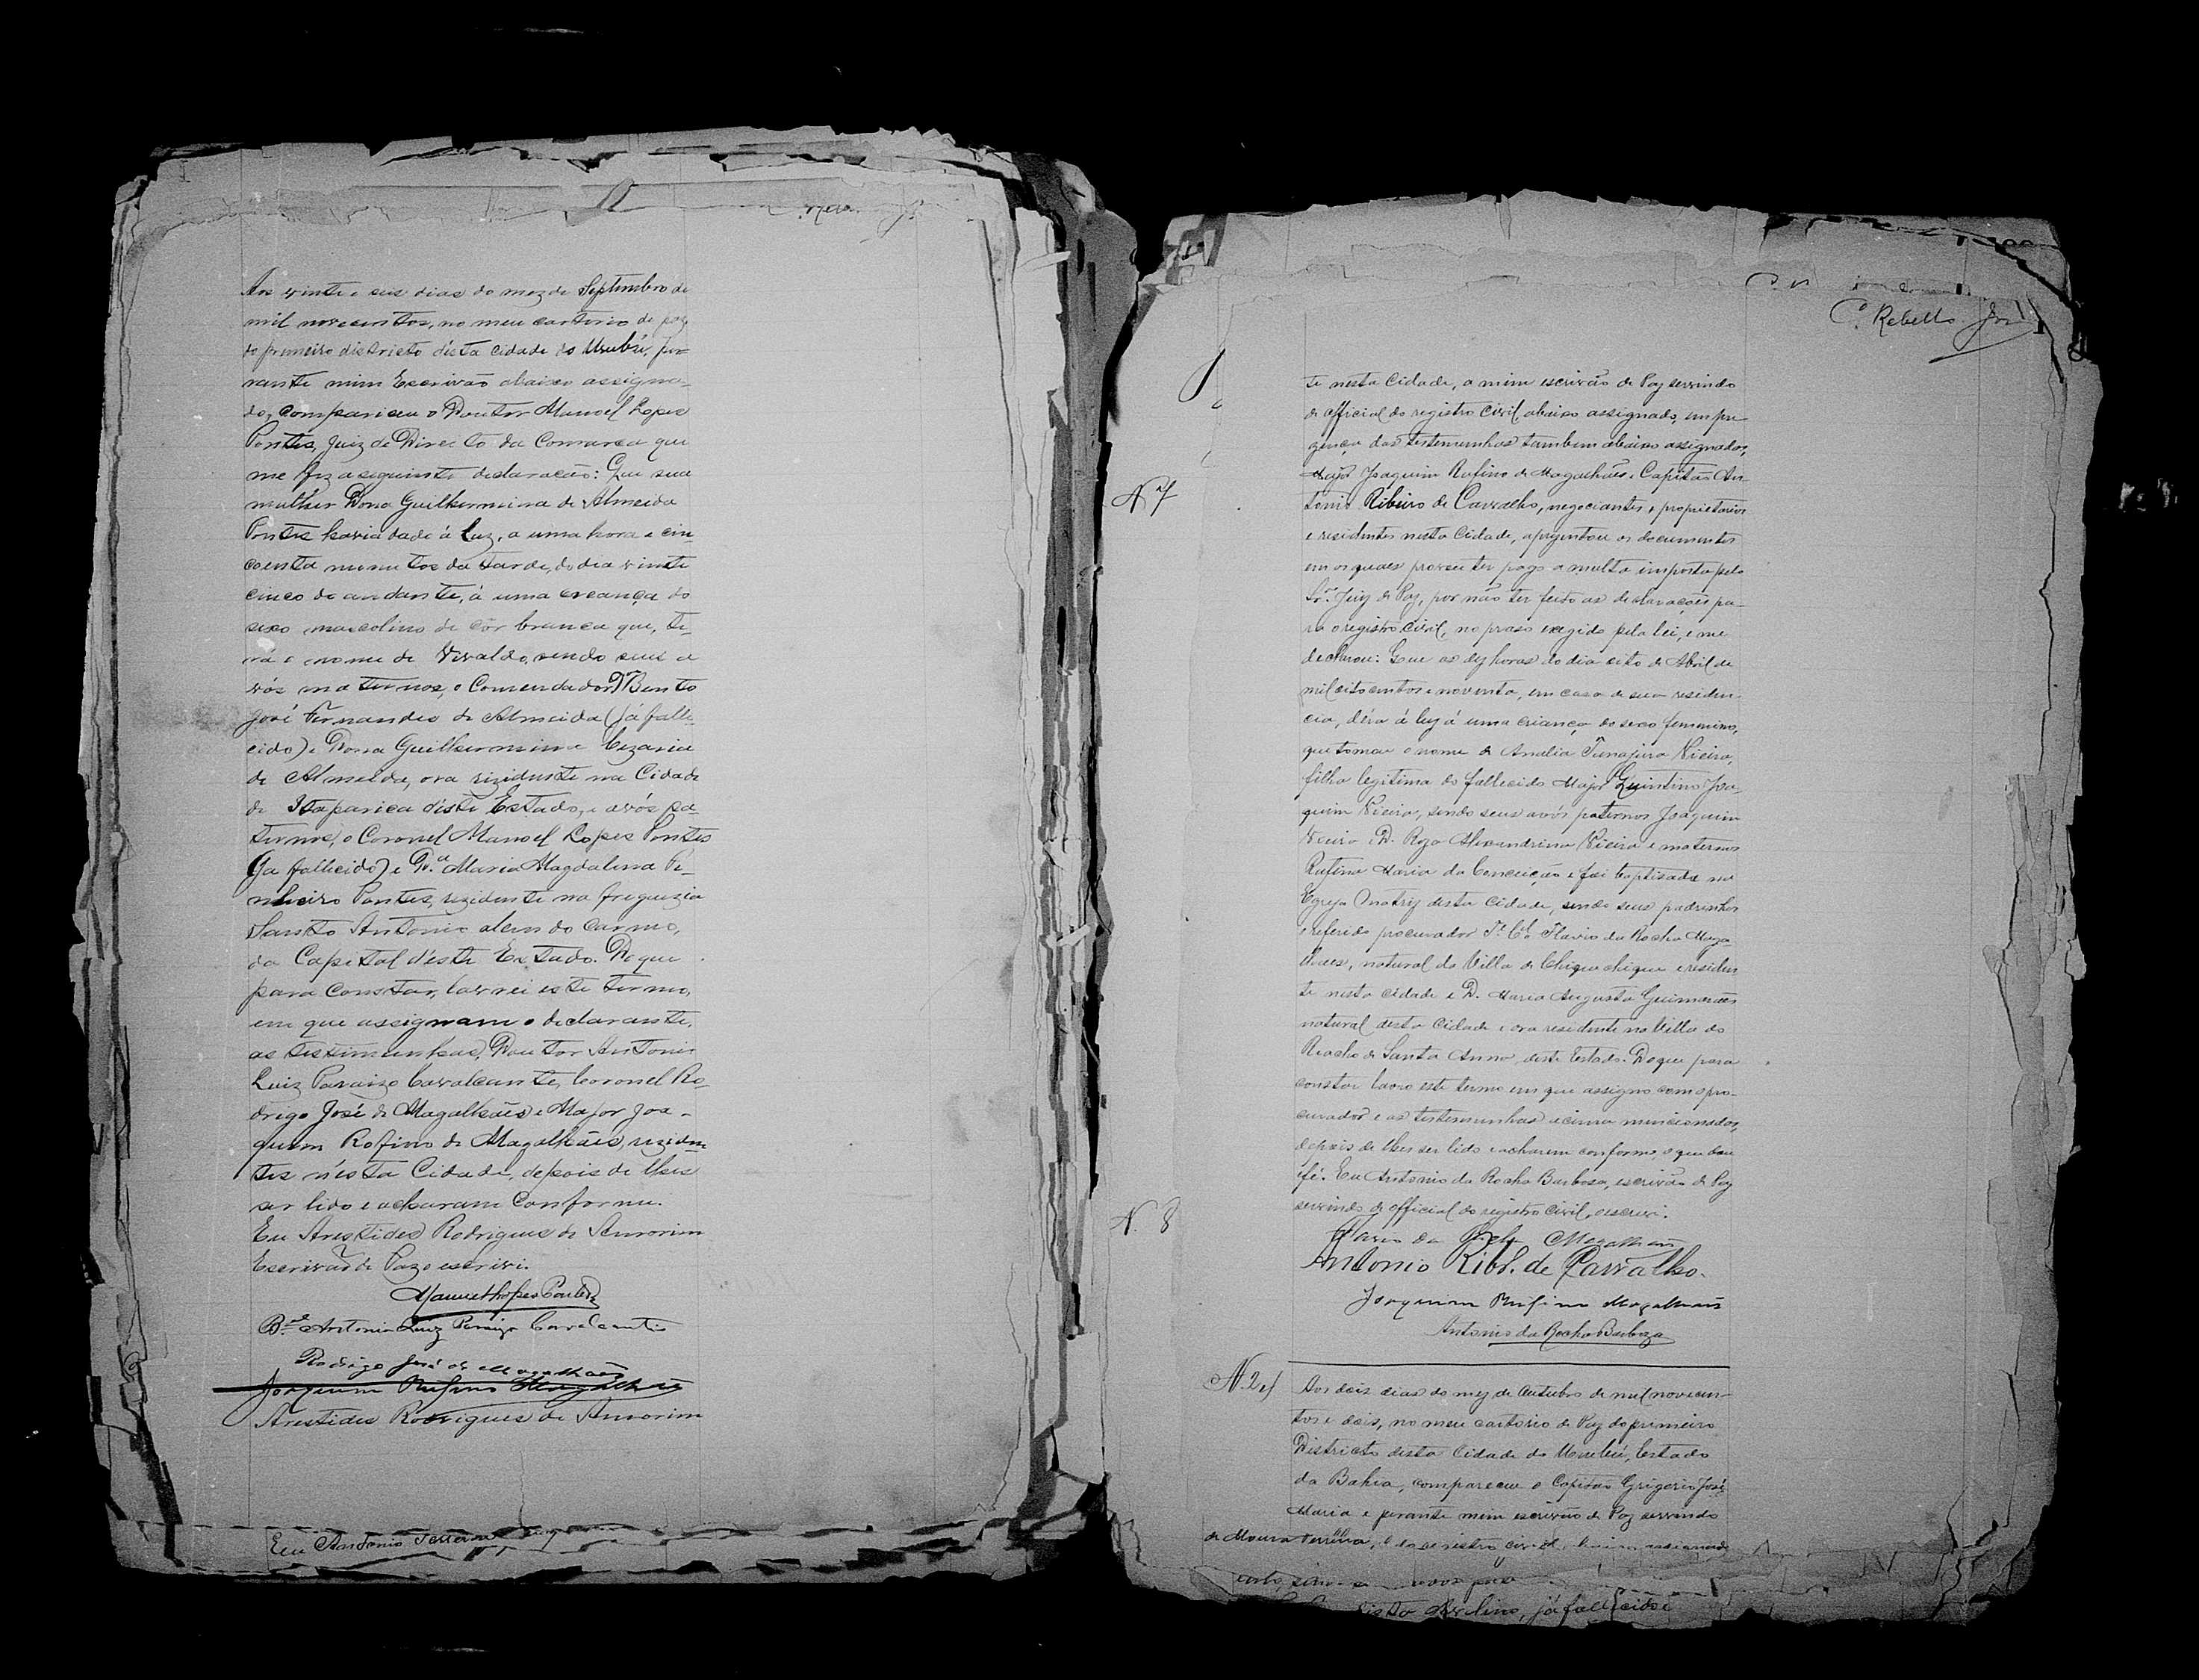 Aos vinte e seis dias do mez de Septembro de
mil novecentos, no meu cartorio de paz
do primeiro districto désta cidade do Urubú, pe-
rante mim Escrivão abaixo assigna-
do, compariceu o Doutor Manoel Lopes
Pontes, Juiz de Direito da Comarca que
me fez a seguinte declaração: Que sua
mulher Dona Guilhermina de Almeida
Pontes havia dado á Luz, a uma hora e cin-
coenta minutos da tarde, do dia vinte
cinco do andante, á uma creança do
sexo mascolino de côr branca que, te-
rá o nome de Vivaldo, sendo seus a
vós maternos, o Comendador Dr. Bento
José Fernandes de Almeida (já falle-
cido) e Dona Guilhermina Cezaria
de Almeida, ora rezidente na Cidade
de Itaparica déste Estado, e avós pa-
ternos, o Coronel Manoel Lopes Pontes
(ja fallecido) e D.ª Maria Magdalena Pi-
nheiro Pontes, rezidente na freguezia
Santo Antonio alem do Carmo,
da Capital d'éste Estado. Do que
para constar, lavrei este termo,
em que assignam o declarante,
as testimunhas, Doutor Antonio
Luiz Paraizo Cavalcante, Coronel Ro-
drigo José de Magalhães e Major Joa-
quim Rofino de Magalhães, reziden-
tes n'ésta Cidade, depois de lhes
ser lido e acharam conforme.
Eu Arestides Rodrigues de Amorim
Escrivão de Paz o escrivi.
Manoel Lopes Pontes
B.el Antonio Luiz Paraizo Cavalcanti
Rodrigo José de Magalhães
Joaquim Rufino Magalhães
Arestides Rodrigues de Amorim
Eeu Antonio
C. Rebello Jor
te nesta Cidade, a mim escrivão de Paz servindo
de official do registro Civil abaixo assignado, em pre-
zença das testemunhas tambem abaixo assignadas,
Major Joaquim Rufino de Magalhães e Capitão An-
N 7
tonio Ribeiro de Carvalho, negociantes e proprietarios
e residentes nesta Cidade, aprezentou os documentos
em os quaes provou ter pago a multa imposta pelo
Sr. Juiz de Paz, por não ter feito as declarações pa-
ra o registro civil, no praso exegido pela lei, e me
declarou: Que as dez horas do dia oito de Abril de
mil oitocentos e noventa, em casa de sua residen-
cia, déra á luz á uma criança do sexo feminino,
que tomou o nome de Analia Vieira,
filha legitima do fallecido Major Quintino Joa-
quim Vieira, sendo seus avós paternos Joaquim
Vieira e D. Roza Alexandrina Vieira e maternos
Rufina Maria da Conceição e foi baptisada na
Egreja Matriz desta Cidade, sendo seus padrinhos
o referido procurador Te. Cel. Flavio da Rocha Maga-
lhaes, natural da Villa de Chique chique e residen
te nesta cidade e D. Maria Augusta Guimarães
natural desta Cidade e ora residente na Villa do
Riacho de Santa Anna, deste Estado. Do que para
constar lavro este termo em que assigno com o pro-
curador e as testemunhas acima mincionadas,
depois de lhes ser lido e acharem conforme o que dou
fé. Eu Antonio da Rocha Barbosa, escrivão de Paz
N. 8
servindo de official do registro Civil, o escrevi.
Flavio da Rocha Magalhães
Antonio Ribr. de Carvalho.
Joaquim Rufino Magalhães
Antonio da Rocha Barboza
N. 2
Aos dois dias do mez de Outubro de mil novecen-
tos e dois, no meu cartorio de Paz do primeiro
Districto desta Cidade do Urubú, Estado
da Bahia, compareceu o Capitão Grigorio José
Maria e perante mim escrivão de Paz servindo
de Moura
Avelino, já fallecido e